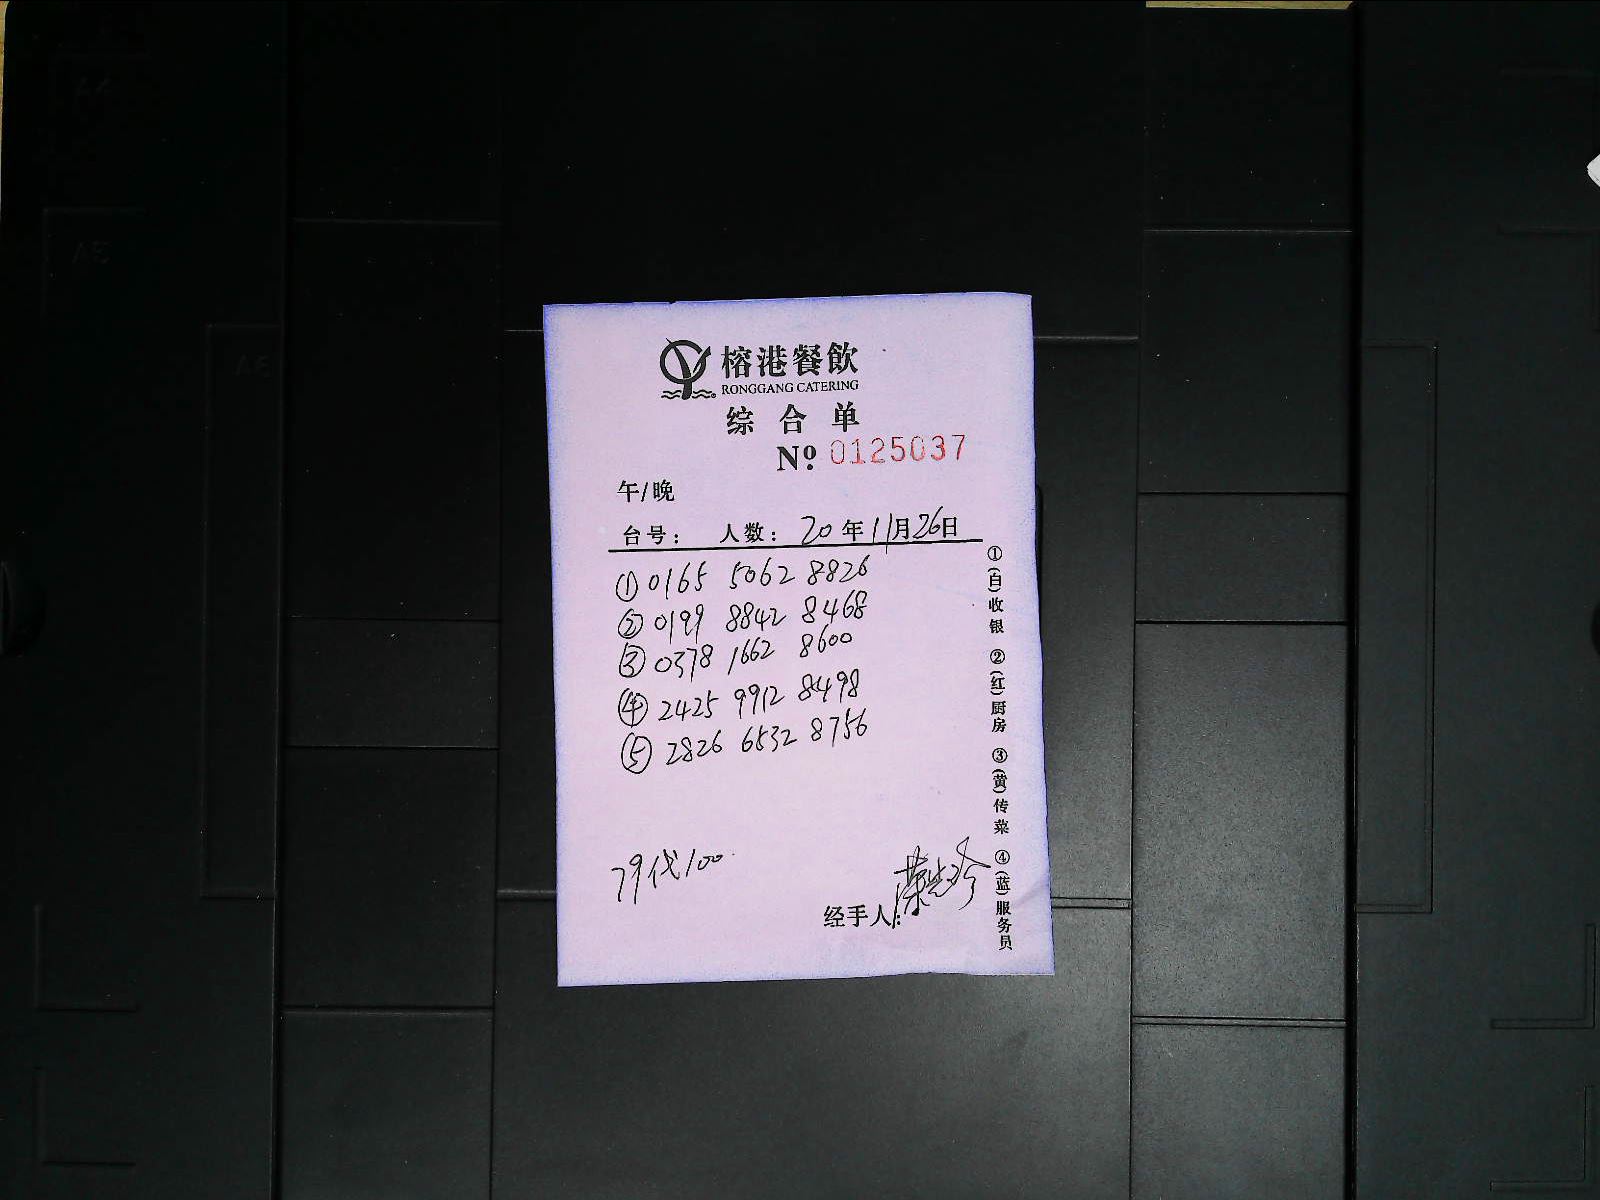 榕港餐飲
RONGGANG CATERING
综合单
Nº 0125037
午/晚
台号： 人数： 20年11月26日
①0165 5062 8826
②0199 8842 8468
③0378 1662 8600
④2425 9912 8498
⑤2826 6532 8756
79代100
经手人：
①(白)收银 ②(红)厨房 ③(黄)传菜 ④(蓝)服务员
A4
A5
A6